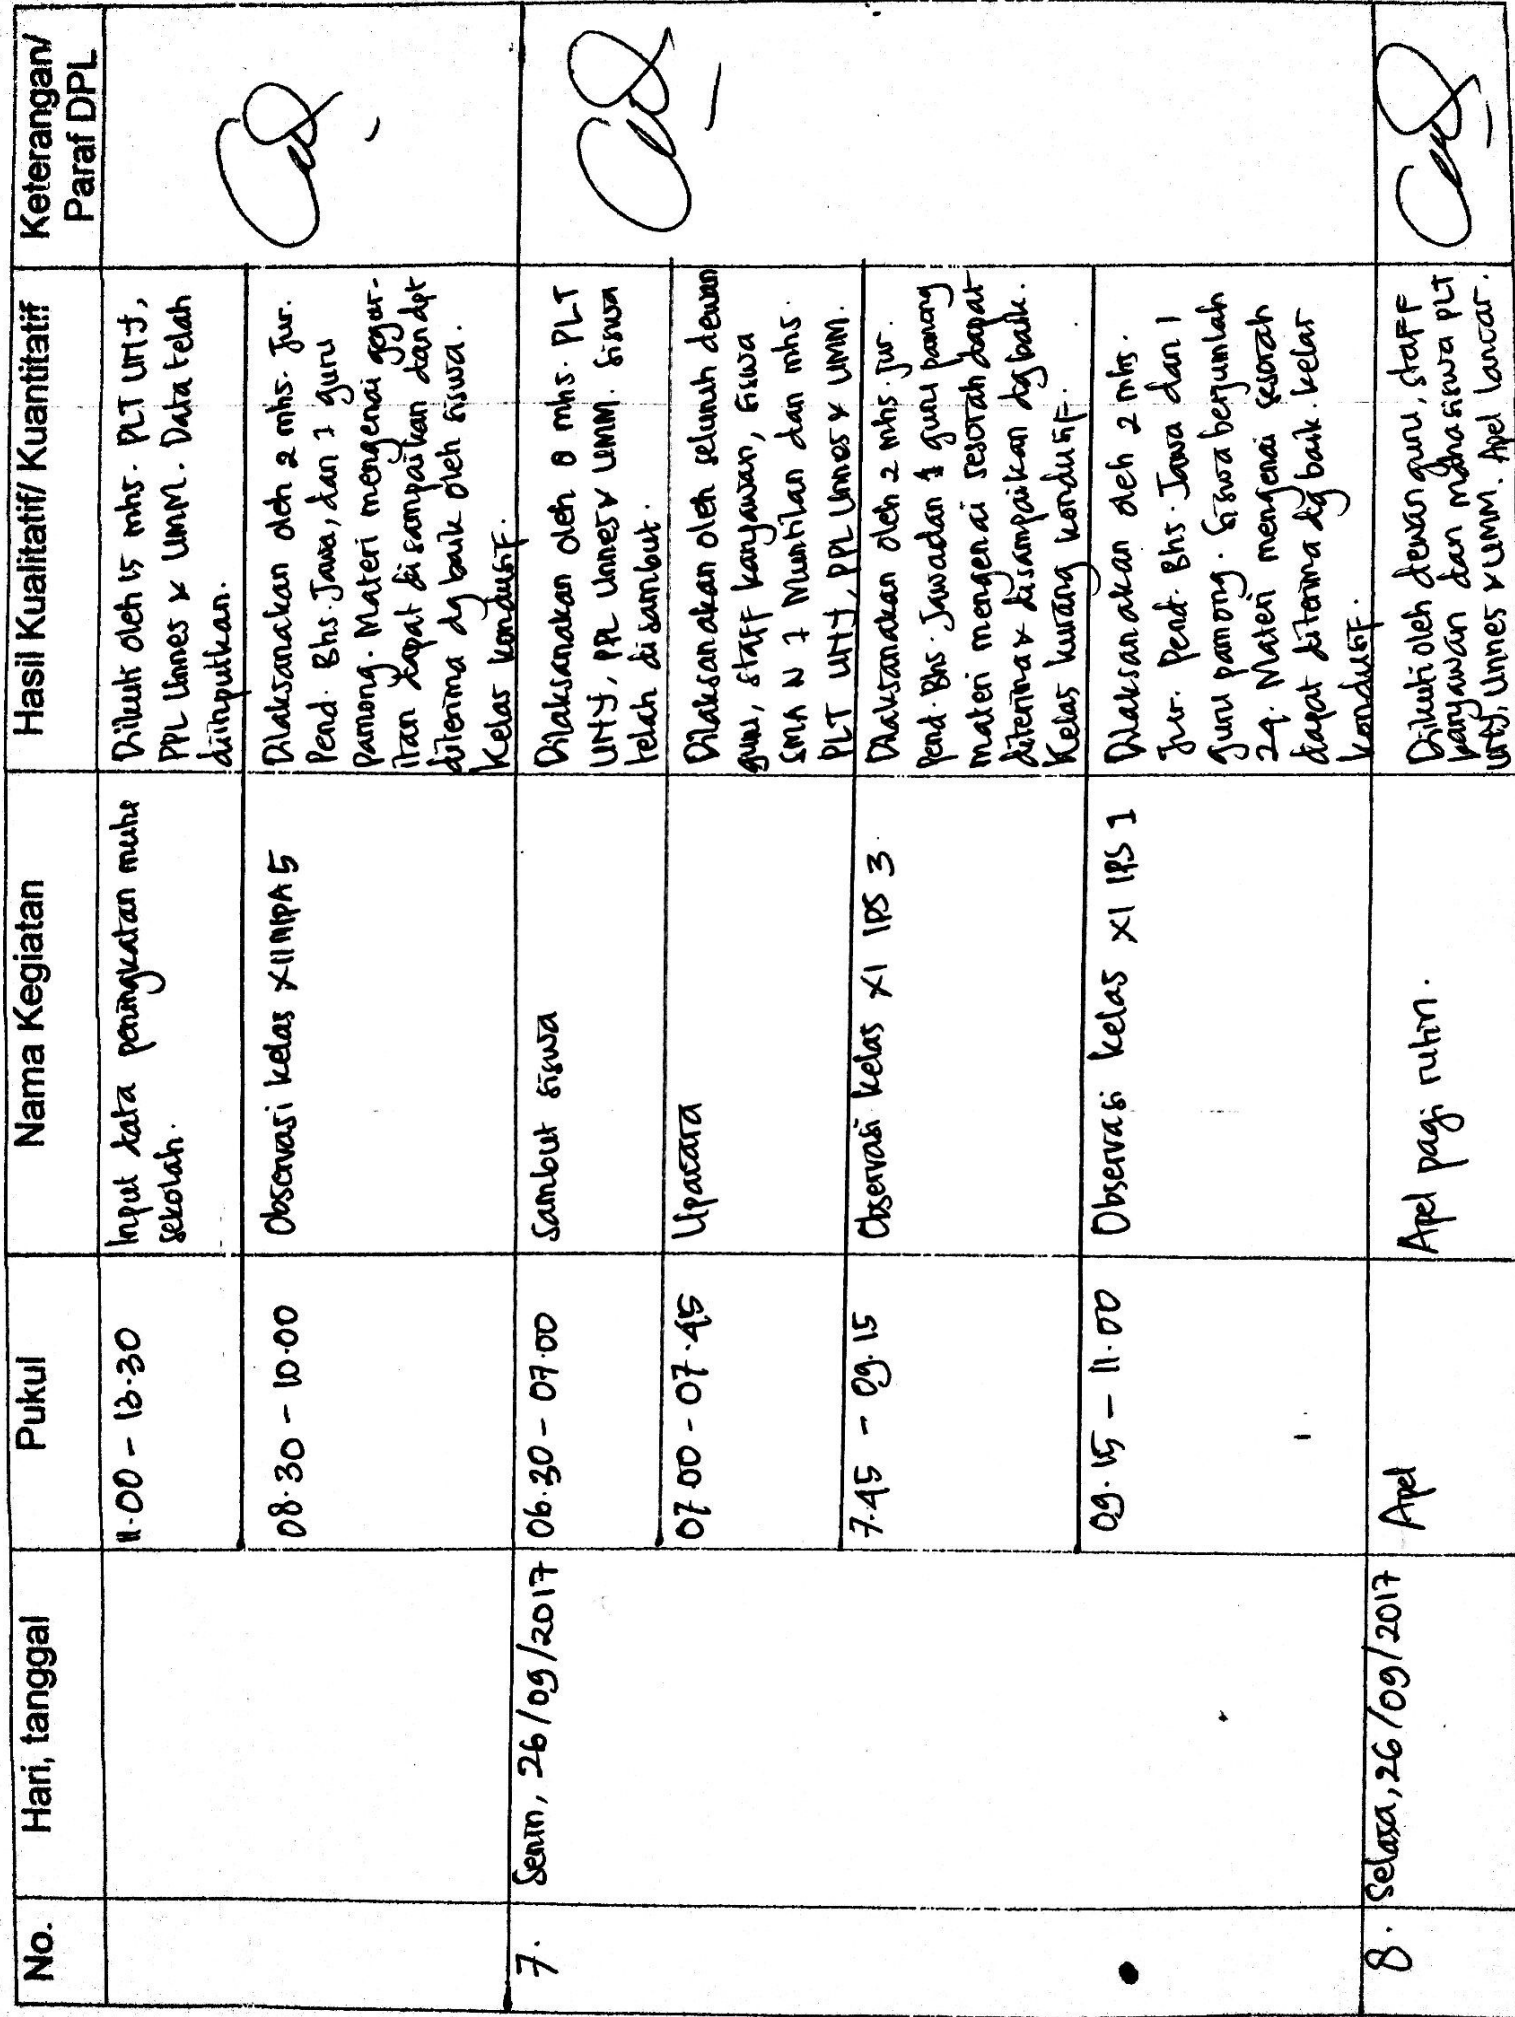 No.
Hari, tanggal
Pukul
Nama Kegiatan
Hasil Kualitatif/ Kuantitatif
Keterangan/
Paraf DPL
11.00 - 13.30
Input data peningkatan mutu
sekolah.
Diikuti oleh 15 mhs. PLT UNY,
PPL Unnes & UMM. Data telah
diinputkan.
08.30 - 10.00
Observasi kelas XII MIPA 5
Dilaksanakan oleh 2 mhs. Jur.
Pend. Bhs. Jawa, dan 1 guru
pamong. Materi mengenai
dapat disampaikan dan dpt
diterima dg baik oleh siswa.
Kelas kondusif.
7.
Senin, 26/09/2017
06.30 - 07.00
Sambut siswa
Dilaksanakan oleh 8 mhs. PLT
UNY, PPL Unnes & UMM. Siswa
telah disambut.
07.00 - 07.45
Upacara
Dilaksanakan oleh seluruh dewan
guru, staff karyawan, siswa
SMA N 1 Muntilan dan mhs.
PLT UNY, PPL Unnes & UMM.
7.45 - 09.15
Observasi kelas XI IPS 3
Dilaksanakan oleh 2 mhs. Jur.
Pend. Bhs. Jawa dan 1 guru pamong
materi mengenai sesorah dapat
diterima & disampaikan dg baik.
Kelas kurang kondusif.
09.15 - 11.00
Observasi kelas XI IPS 1
Dilaksanakan oleh 2 mhs.
Jur. Pend. Bhs. Jawa dan 1
guru pamong. Siswa berjumlah
24. Materi mengenai sesorah
dapat diterima dg baik. Kelas
kondusif.
8.
Selasa, 26/09/2017
Apel
Apel pagi rutin.
Diikuti oleh dewan guru, staff
karyawan dan mahasiswa PLT
UNY, Unnes & UMM. Apel lancar.